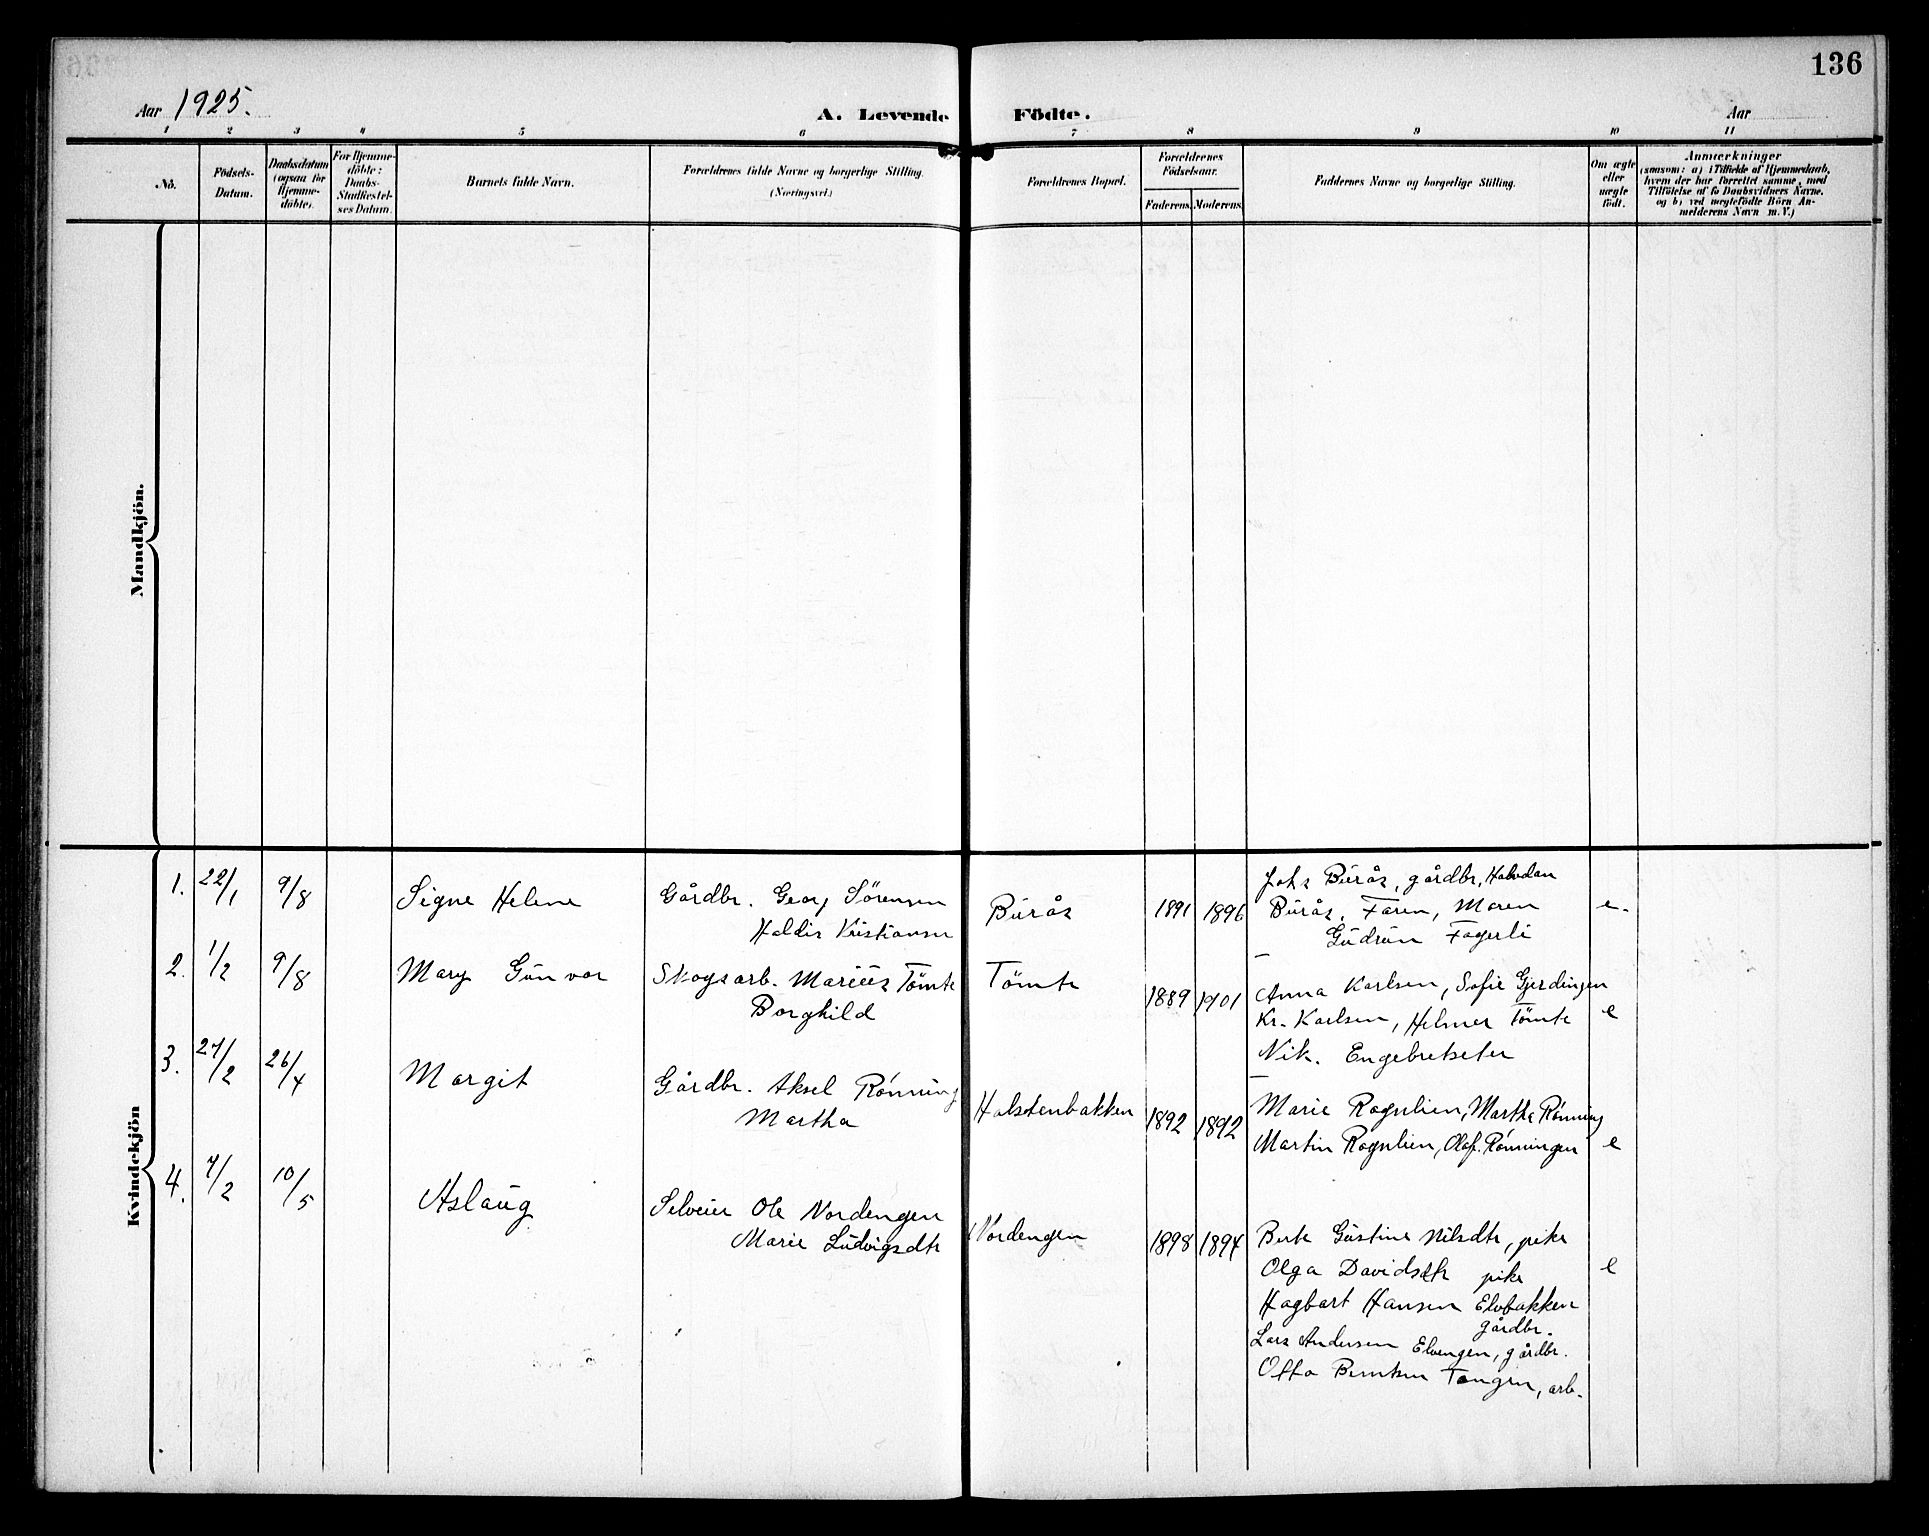 136
Aar 1925.
A. Levende Födte.
Aar
1 2 3 4 5 6 7 8 9 10 11
No.
Födsels-Datum.
Daabsdatum (ogsaa for Hjemme-döbte).
For Hjemme-döbte: Daabs-Stadfestel-ses Datum.
Barnets fulde Navn.
Forældrenes fulde Navne og borgerlige Stilling.
(Næringsvei.)
Forældrenes Bopæl.
Forældrenes Födselsaar.
Faderens. Moderens.
Faddernes Navne og borgerlige Stilling.
Om ægte eller uægte födt.
Anmærkninger
(saasom: a) i Tilfælde af Hjemmedaab,
hvem der har forrettet samme, med
Tilföielse af to Daabsvidners Navne,
og b) ved uægtefödte Börn An-
melderens Navn m. V.)
Mandkjön.
Kvindekjön
1. 22/1 9/8 Signe Helene
Gårdbr. Georg Sörensen
Haldis Kristiansen
Burås 1891 1896
Johs Burås, gårdbr, Halvdan
Burås, Faren, Moren
Gudrun Fagerli
e.
2. 1/2 9/8 Mary Gunvor
Skogsarb. Marius Tömte
Borghild
Tömte 1889 1901
Anna Karlsen, Sofie Gjerdingen
Kr. Karlsen, Helmer Tömte
Nik. Engebretseter
e
3. 27/2 26/4 Margit
Gårdbr. Aksel Rønning
Martha
Halstenbakken 1892 1892
Marie Rognlien, Martha Rønning
Martin Rognlien, Olaf Rønningen
e
4. 7/2 10/5 Aslaug
Selveier Ole Nordengen
Marie Ludvigsdtr
Nordengen 1898 1894
Berte Gustine Nilsdtr, pike
Olga Davidsdtr pike
Hagbart Hansen Elvbakken
gårdbr.
Lars Andersen Elvengen, gårdbr.
Otto Berntsen Tangen, arb.
e